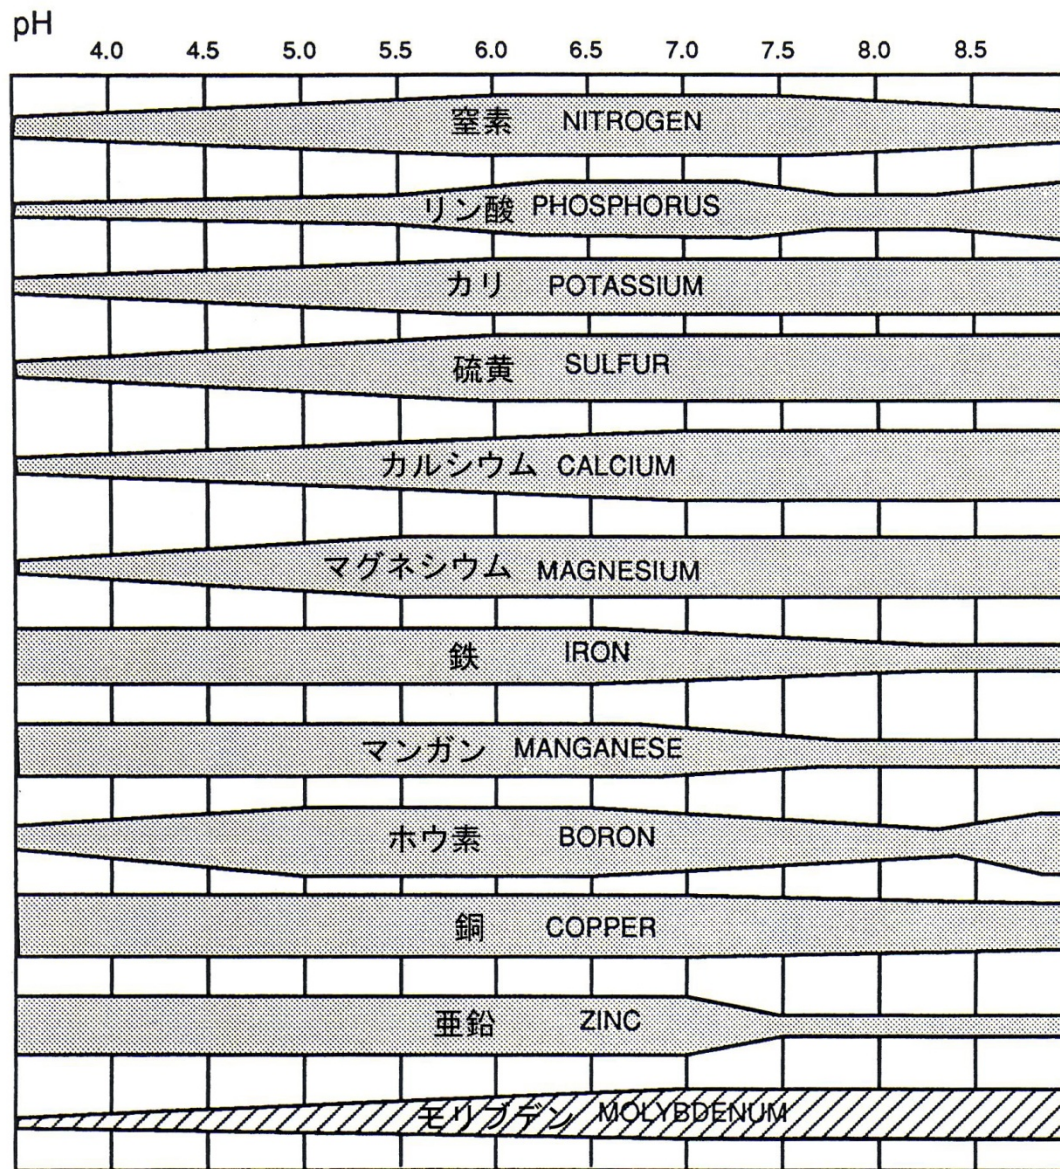 pH
4.0 4.5 5.0 5.5 6.0 6.5 7.0 7.5 8.0 8.5
窒素 NITROGEN
リン酸 PHOSPHORUS
カリ POTASSIUM
硫黄 SULFUR
カルシウム CALCIUM
マグネシウム MAGNESIUM
鉄 IRON
マンガン MANGANESE
ホウ素 BORON
銅 COPPER
亜鉛 ZINC
モリブデン MOLYBDENUM